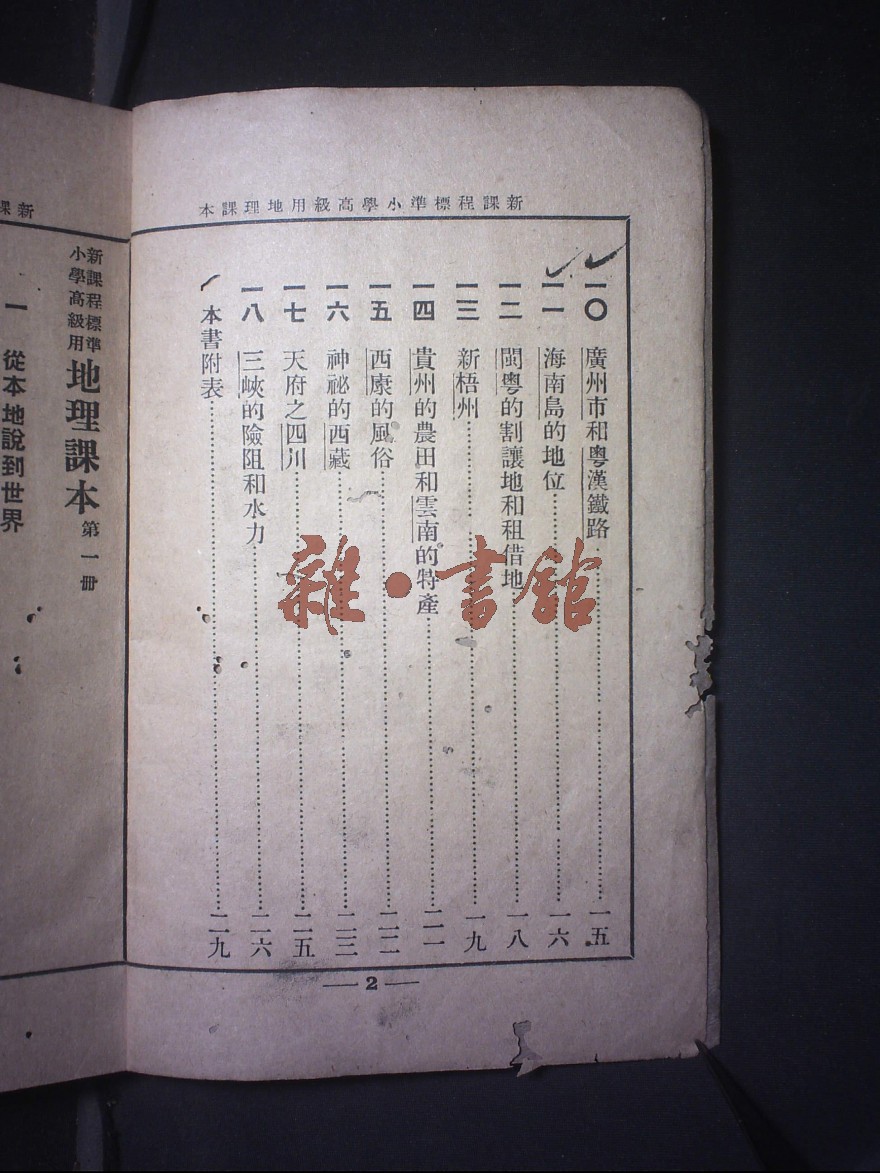 新課程標準小學高級用地理課本
一〇 廣州市和粵漢鐵路……一五
一一 海南島的地位……一六
一二 閩粵的割讓地和租借地……一八
一三 新梧州……一九
一四 貴州的農田和雲南的特產……二一
一五 西康的風俗……二二
一六 神祕的西藏……二三
一七 天府之四川……二五
一八 三峽的險阻和水力……二六
本書附表……二九
2
雜·書館
新課
新課程標準
小學高級用
地理課本 第一冊
一 從本地說到世界